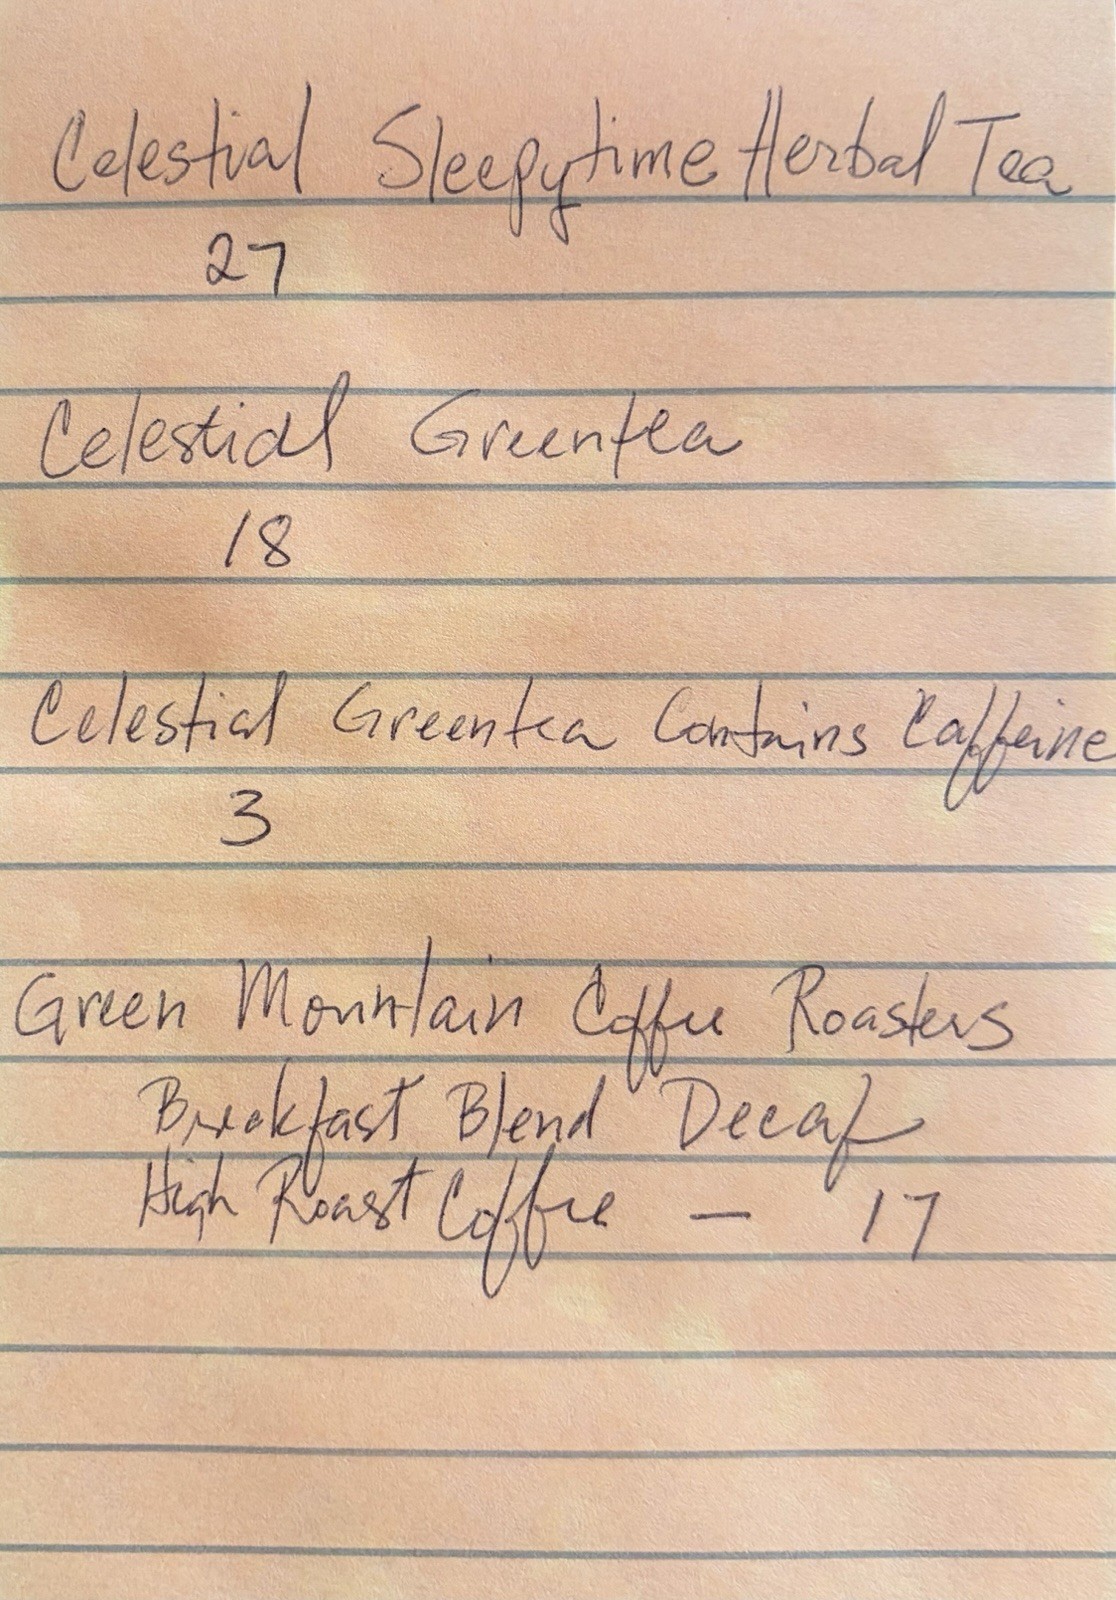 Celestial Sleepytime Herbal Tea
27
Celestial Greentea
18
Celestial Greentea Contains Caffeine
3
Green Mountain Coffee Roasters
Breakfast Blend Decaf
High Roast Coffee — 17